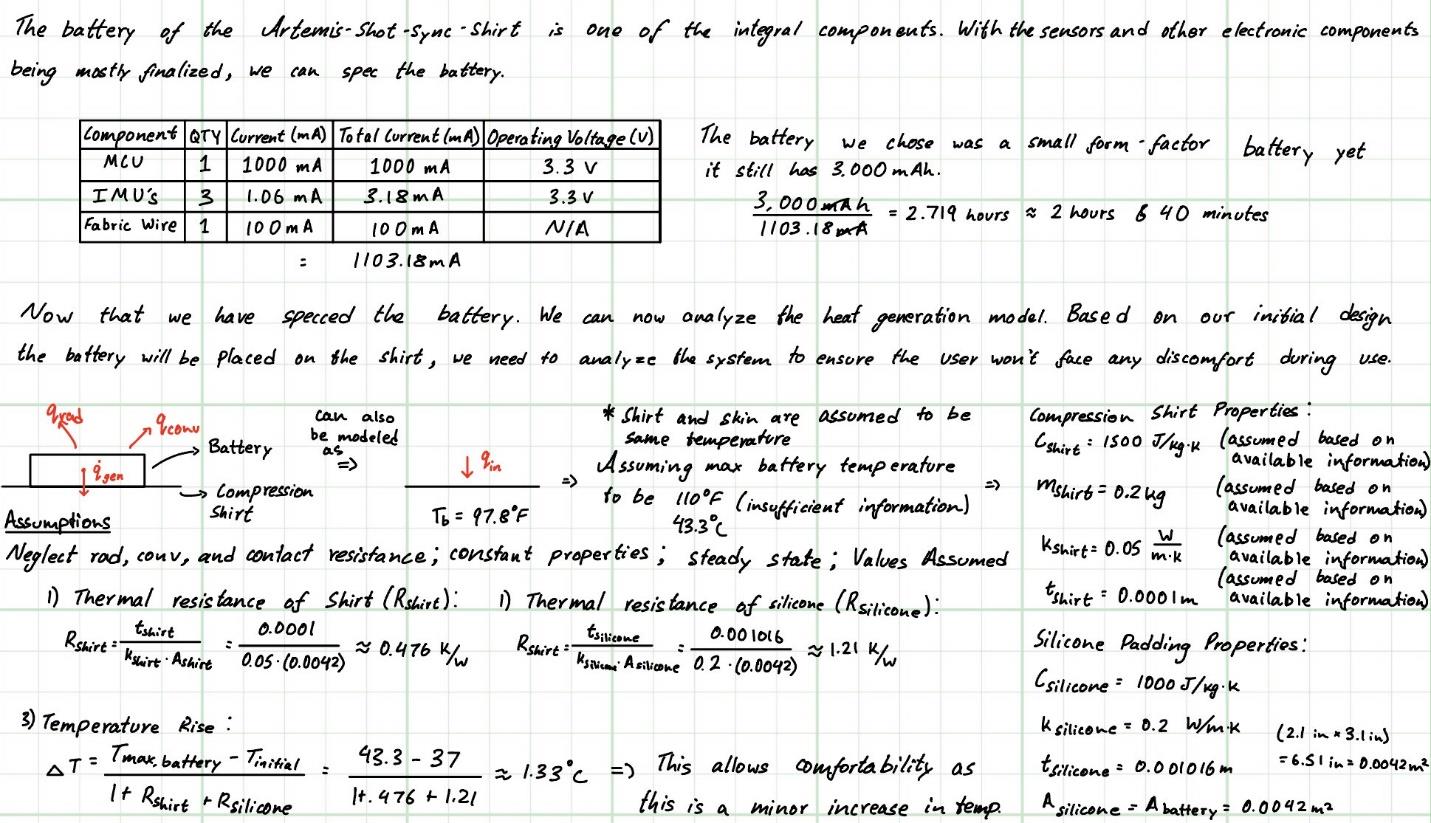 The battery of the Artemis-Shot-Sync-Shirt is one of the integral components. With the sensors and other electronic components
being mostly finalized, we can spec the battery.
Component QTY Current (mA) Total Current (mA) Operating Voltage (V)
MCU 1 1000 mA 1000 mA 3.3 V
IMU's 3 1.06 mA 3.18mA 3.3 V
Fabric Wire 1 100mA 100mA N/A
= 1103.18mA
The battery we chose was a small form-factor battery yet
it still has 3,000 mAh.
3,000mAh / 1103.18mA = 2.719 hours ≈ 2 hours & 40 minutes
Now that we have specced the battery. We can now analyze the heat generation model. Based on our initial design
the battery will be placed on the shirt, we need to analyze the system to ensure the user won't face any discomfort during use.
qrad
qconv
Battery
q̇gen
Compression
Shirt
can also
be modeled
as
=>
qin
Tb = 97.8°F
=>
* Shirt and skin are assumed to be
same temperature
Assuming max battery temperature
to be 110°F (insufficient information)
43.3°C
=>
Compression Shirt Properties:
Cshirt = 1500 J/kg·K (assumed based on
available information)
mshirt = 0.2 kg (assumed based on
available information)
Kshirt = 0.05 W/m·K (assumed based on
available information)
tshirt = 0.0001m (assumed based on
available information)
Assumptions
Neglect rad, conv, and contact resistance; constant properties; steady state; Values Assumed
1) Thermal resistance of Shirt (Rshirt):
Rshirt = tshirt / kshirt · Ashirt = 0.0001 / 0.05·(0.0042) ≈ 0.476 K/W
1) Thermal resistance of silicone (Rsilicone):
Rshirt = tsilicone / ksilicone · Asilicone = 0.001016 / 0.2·(0.0042) ≈ 1.21 K/W
Silicone Padding Properties:
Csilicone = 1000 J/kg·K
Ksilicone = 0.2 W/m·K
(2.1 in × 3.1in)
tsilicone = 0.001016 m
= 6.51 in = 0.0042m²
Asilicone = Abattery = 0.0042 m²
3) Temperature Rise:
ΔT = Tmax,battery - Tinitial / 1+ Rshirt + Rsilicone = 43.3 - 37 / 1+.476 + 1.21 ≈ 1.33°C => This allows comfortability as
this is a minor increase in temp.